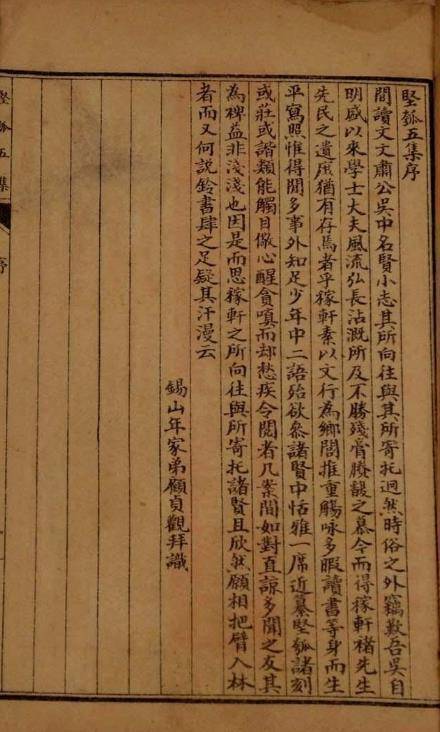 堅瓠五集序
間讀文文肅公吳中名賢小志其所向往與其所寄托迥然時俗之外竊歎吾吳自
明盛以來學士大夫風流弘長沾溉所及不勝殘膏賸馥之慕今而得稼軒褚先生
先民之遺風猶有存焉者乎稼軒素以文行為鄉閭推重觴咏多暇讀書等身而生
平寫照惟得閒多事外知足少年中二語殆欲叅諸賢中恬雅一席近纂堅瓠諸刻
或莊或諧類能觸目儆心醒貪嗔而却愁疾令閱者几案間如對直諒多聞之友其
為裨益非淺淺也因是而思稼軒之所向往與所寄托諸賢且欣然願相把臂入林
者而又何說鈴書肆之足疑其汗漫云
錫山年家弟顧貞觀拜識
堅瓠五集
序